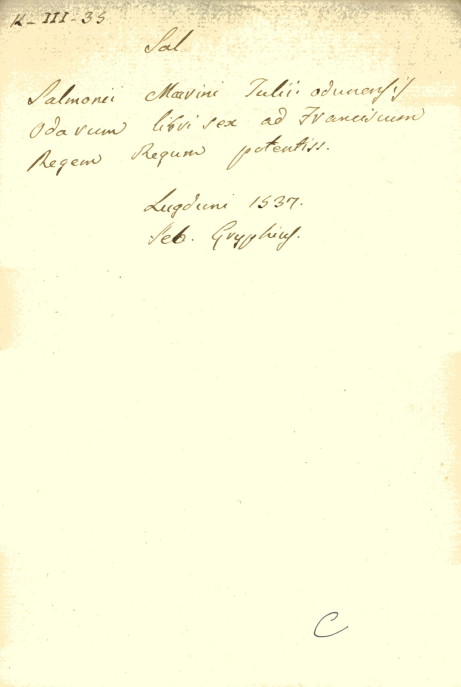 K-III-35
Sal
Salmonii Macrini Julii odunensis
Odarum libri sex ad Franciscum
Regem Regum potentiss.
Lugduni 1537.
Seb. Gryphius.
C